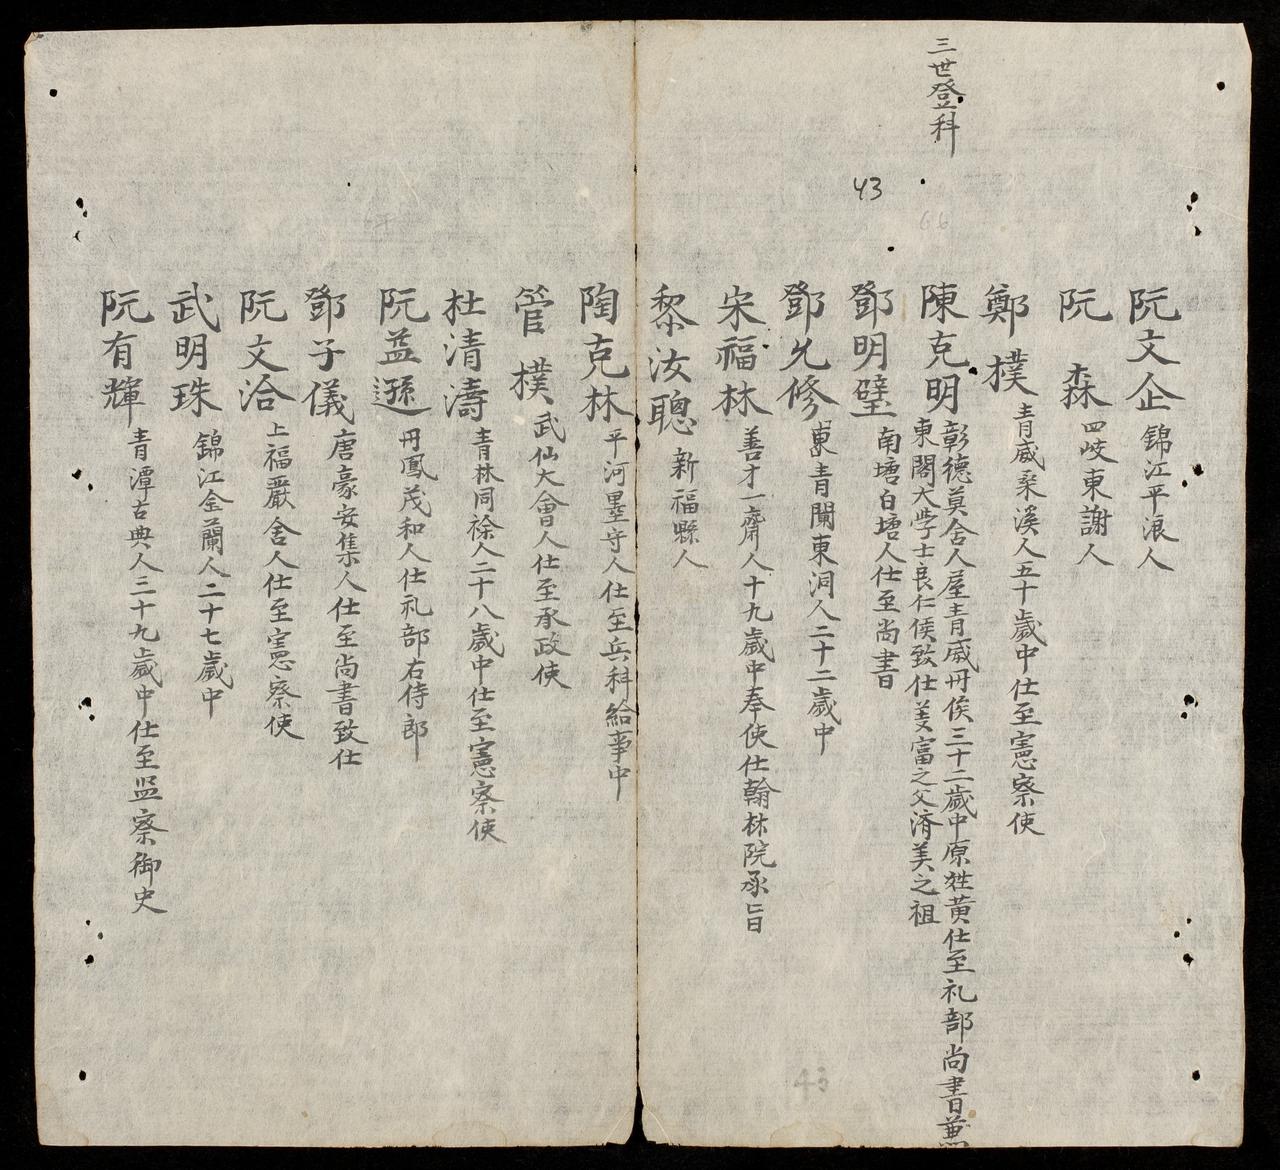 三世登科
43
66
阮文企 錦江平浪人
阮森 四岐東謝人
鄭樸 青威桑溪人五十歲中仕至憲察使
陳克明 彰德莫舍人屋青威丹侯三十二歲中原姓黄仕至礼部尚書兼
東閣大学士良仁侯致仕芟富之父濟美之祖
鄧明璧 南塘白塘人仕至尚書
鄧允修 東青闌東洞人二十二歲中
宋福林 善才一齋人十九歲中奉使仕翰林院承旨
黎汝聰 新福縣人
陶克林 平河墨守人仕至兵科給事中
管樸 武仙大會人仕至承政使
杜清濤 青林同稌人二十八歲中仕至憲察使
阮益遜 丹鳳茂和人仕礼部右侍郎
鄧子儀 唐豪安集人仕至尚書致仕
阮文洽 上福嚴舍人仕至憲察使
武明珠 錦江金蘭人二十七歲中
阮有輝 青潭古典人三十九歲中仕至监察御史
43